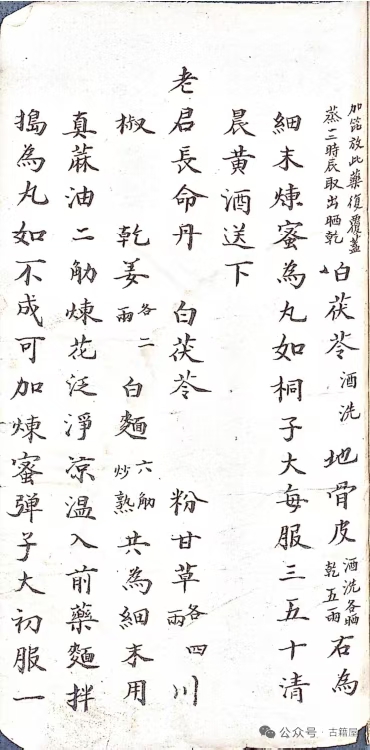 加放此藥復覆蓋蒸十二時辰取出晒乾 白茯苓 酒洗 地骨皮 酒洗各晒乾五兩 石為
細末煉蜜為丸如桐子大每服三五十清
晨黃酒送下
老君長命丹 白茯苓 粉甘草 各四兩 川
椒 乾姜 各二兩 白麵 六觔炒熟 共為細末用
真蔴油二觔煉花泛淨凉温入前藥麵拌
搗為丸如不成可加煉蜜弹子大初服一
公众号·古籍屋